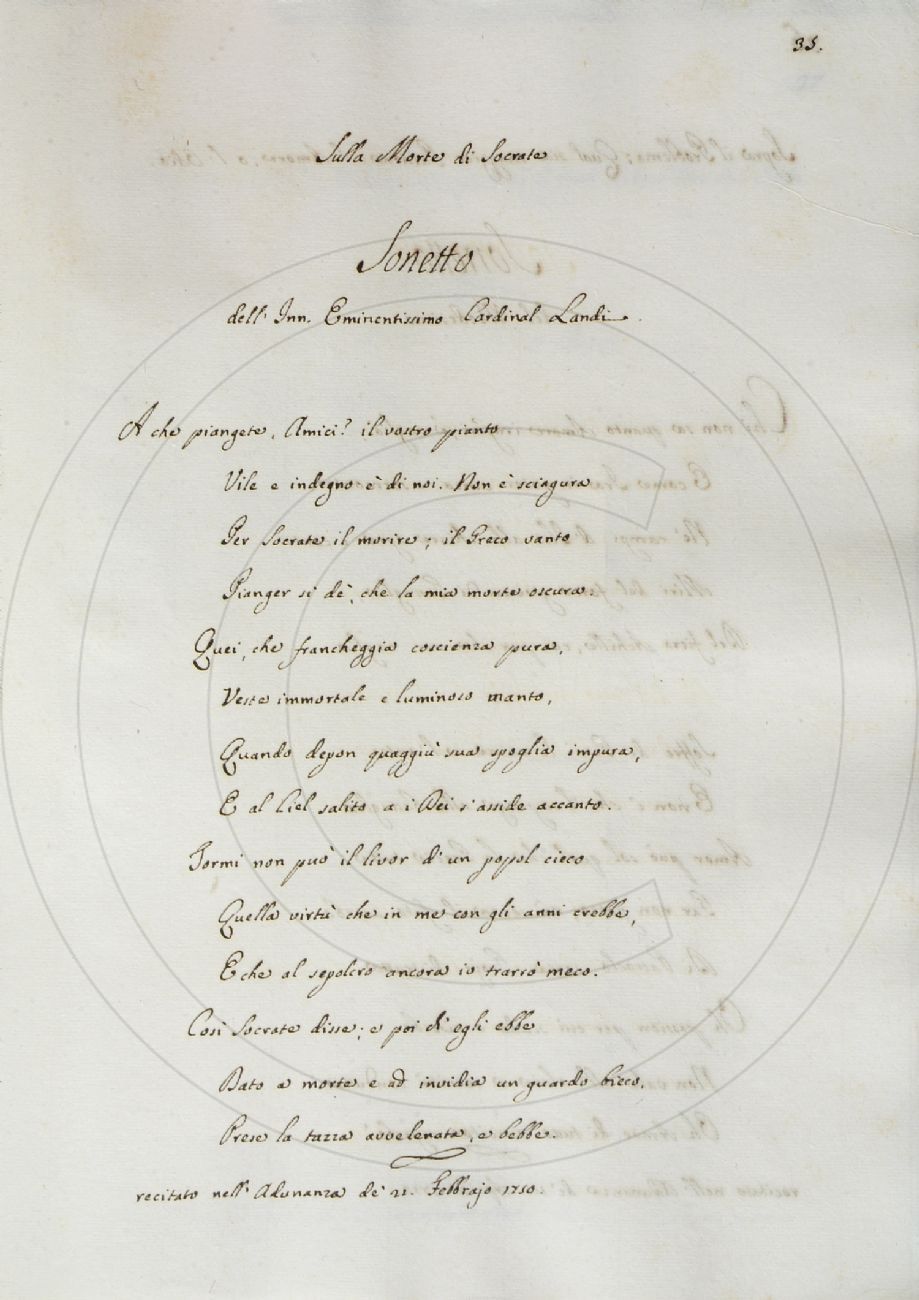 35.
Sulla Morte di Socrate
Sonetto
dell' Inn. Eminentissimo Cardinal Landi.
A che piangete, Amici? il vostro pianto
Vile e indegno è di noi. Non è sciagura
Per Socrate il morire; il Greco vanto
Pianger si dè, che la mia morte oscura.
Quei, che francheggia coscienza pura,
Veste immortale e luminoso manto,
Quando depon quaggiù sua spoglia impura,
E al Ciel salito a i Dei s'asside accanto.
Tormi non può il livor d'un popol cieco
Quella virtù che in me con gli anni crebbe,
E che al sepolcro ancora io trarrò meco.
Così Socrate disse; e poi ch'egli ebbe
Dato a morte e ad invidia un guardo bieco,
Prese la tazza avvelenata, e bebbe.
recitato nell' Adunanza de' 21. Febbrajo 1750.